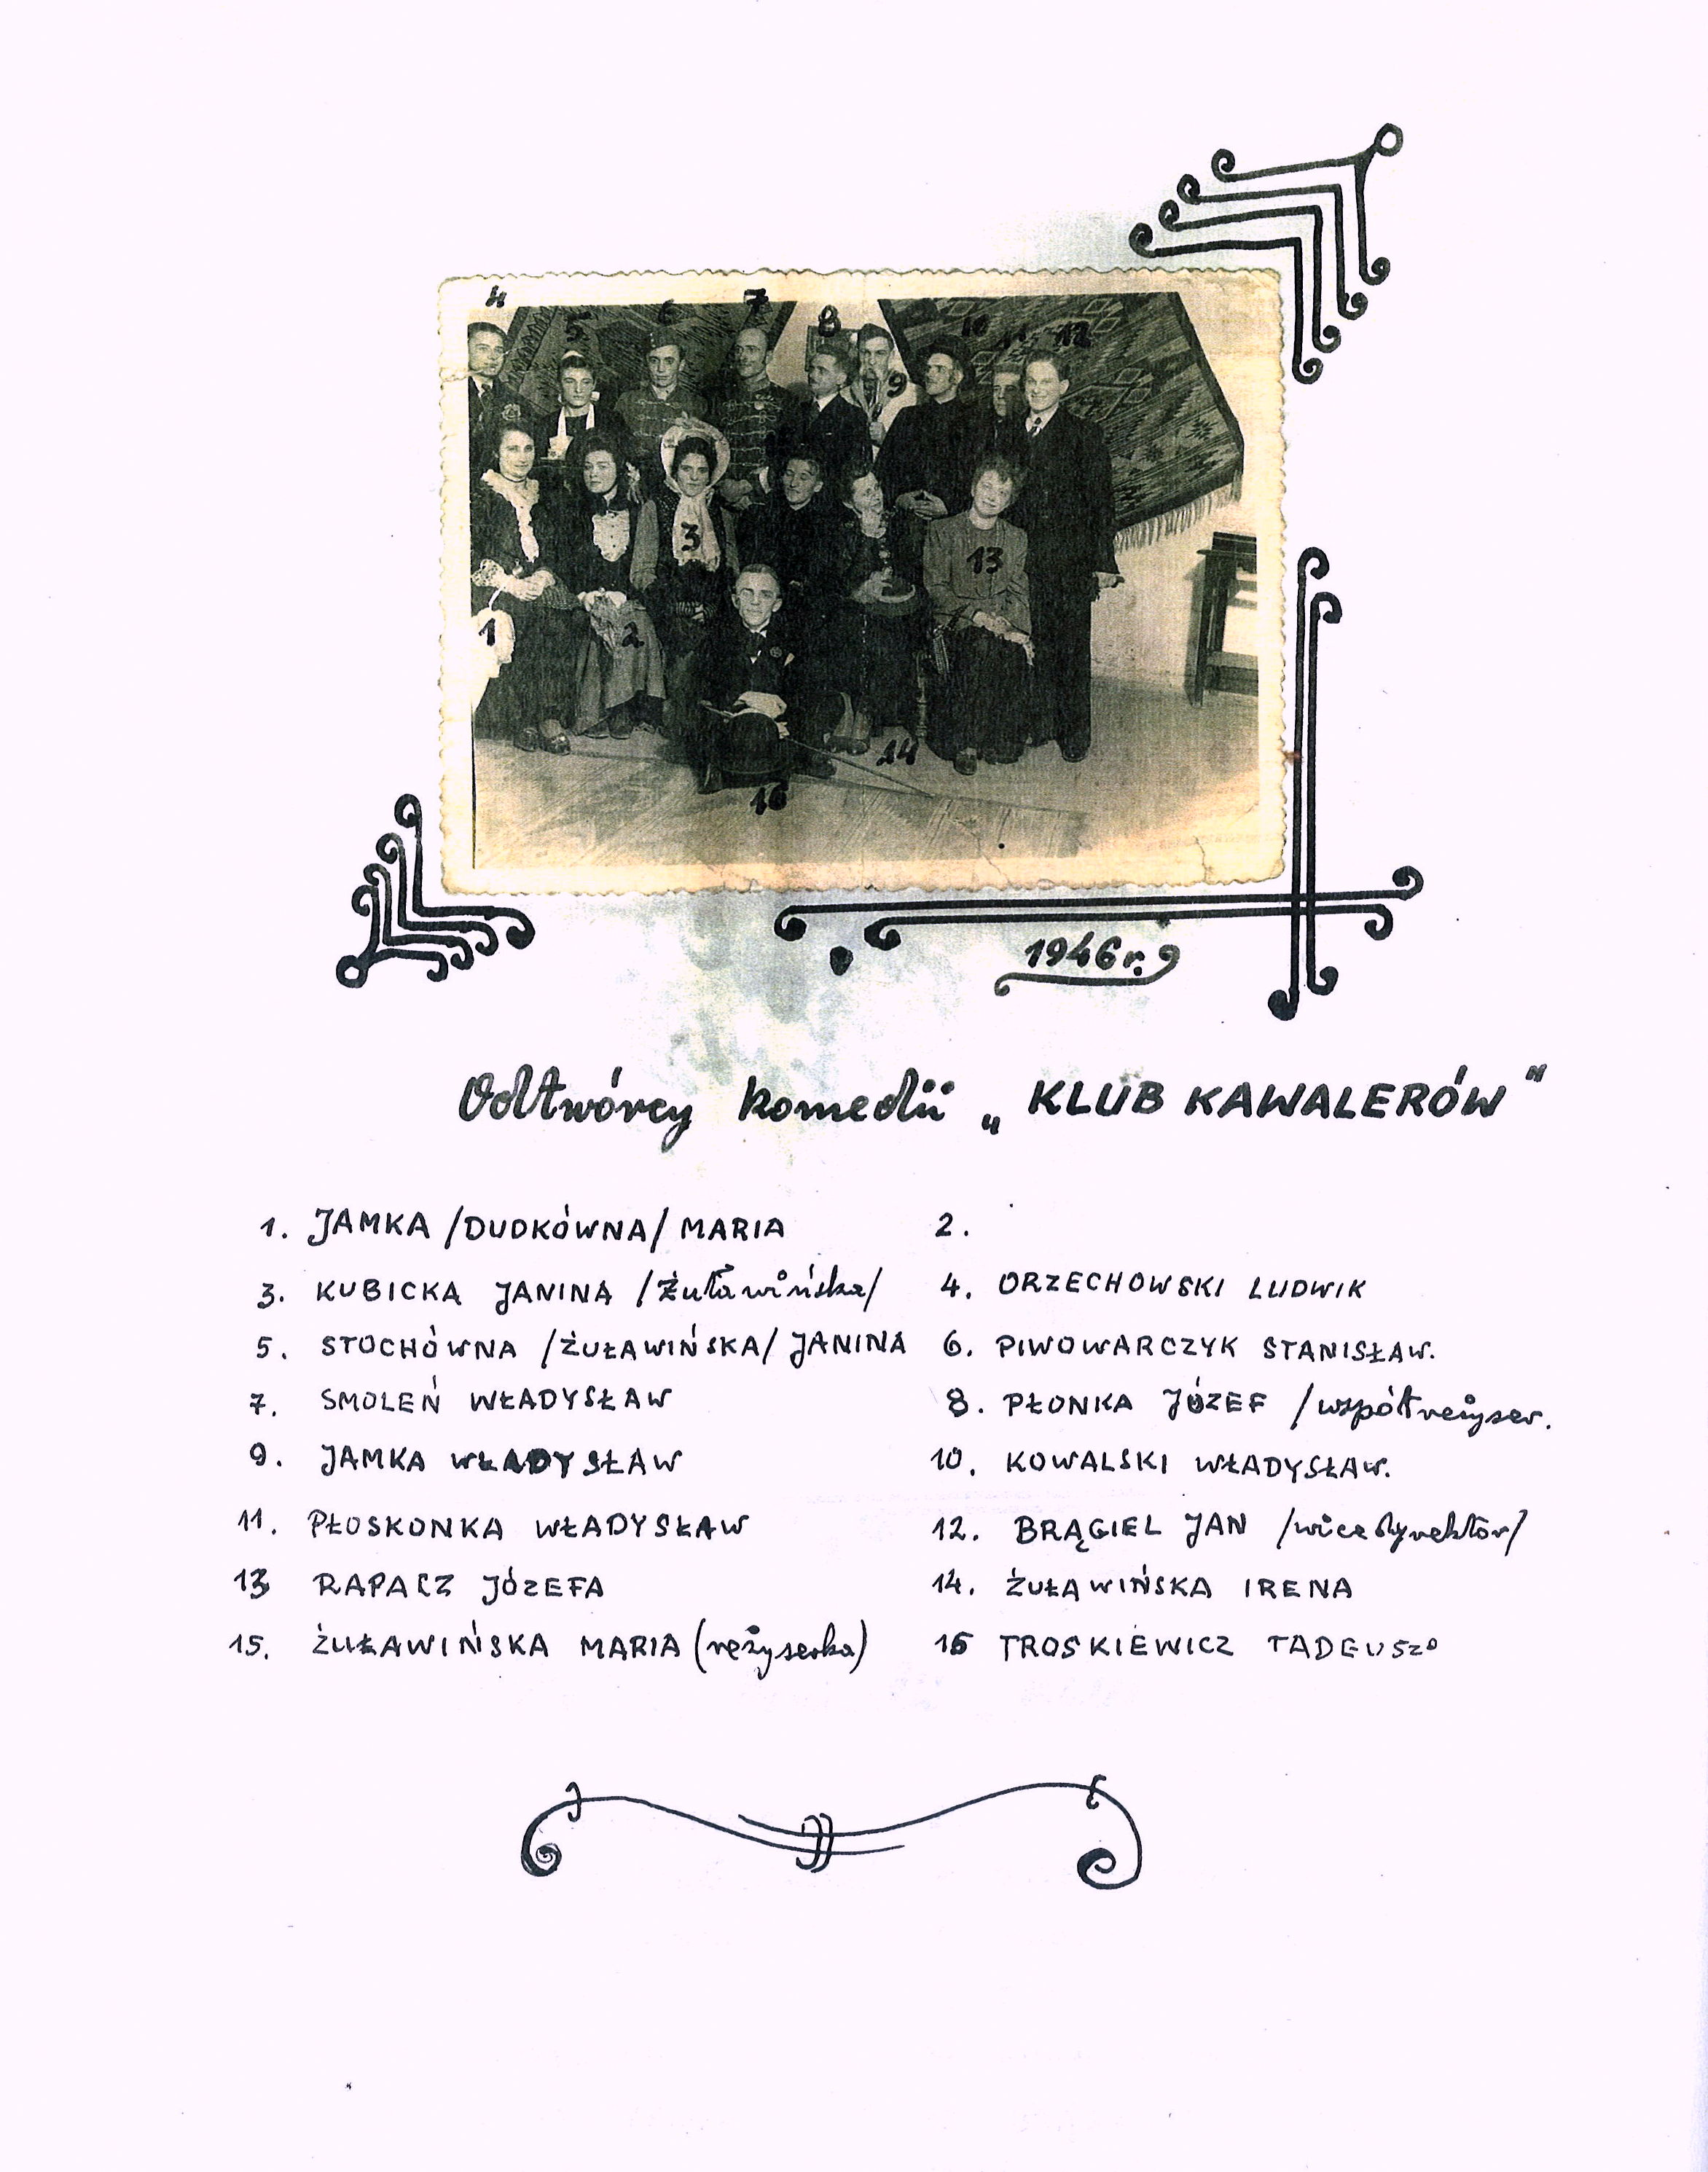 4
5
6
7
8
9
10
11
12
3
13
1
2
14
16
1946 r.
Odtwórcy komedii „KLUB KAWALERÓW"
1. JAMKA /DUDKÓWNA/ MARIA 2.
3. KUBICKA JANINA /Żuławińska/ 4. ORZECHOWSKI LUDWIK
5. STOCHÓWNA /ŻUŁAWIŃSKA/ JANINA 6. PIWOWARCZYK STANISŁAW.
7. SMOLEŃ WŁADYSŁAW 8. PŁONKA JÓZEF /współreżyser.
9. JAMKA WŁADYSŁAW 10. KOWALSKI WŁADYSŁAW.
11. PŁOSKONKA WŁADYSŁAW 12. BRĄGIEL JAN /wicedyrektor/
13 RAPACZ JÓZEFA 14. ŻUŁAWIŃSKA IRENA
15. ŻUŁAWIŃSKA MARIA (reżyserka) 16 TROSKIEWICZ TADEUSZ